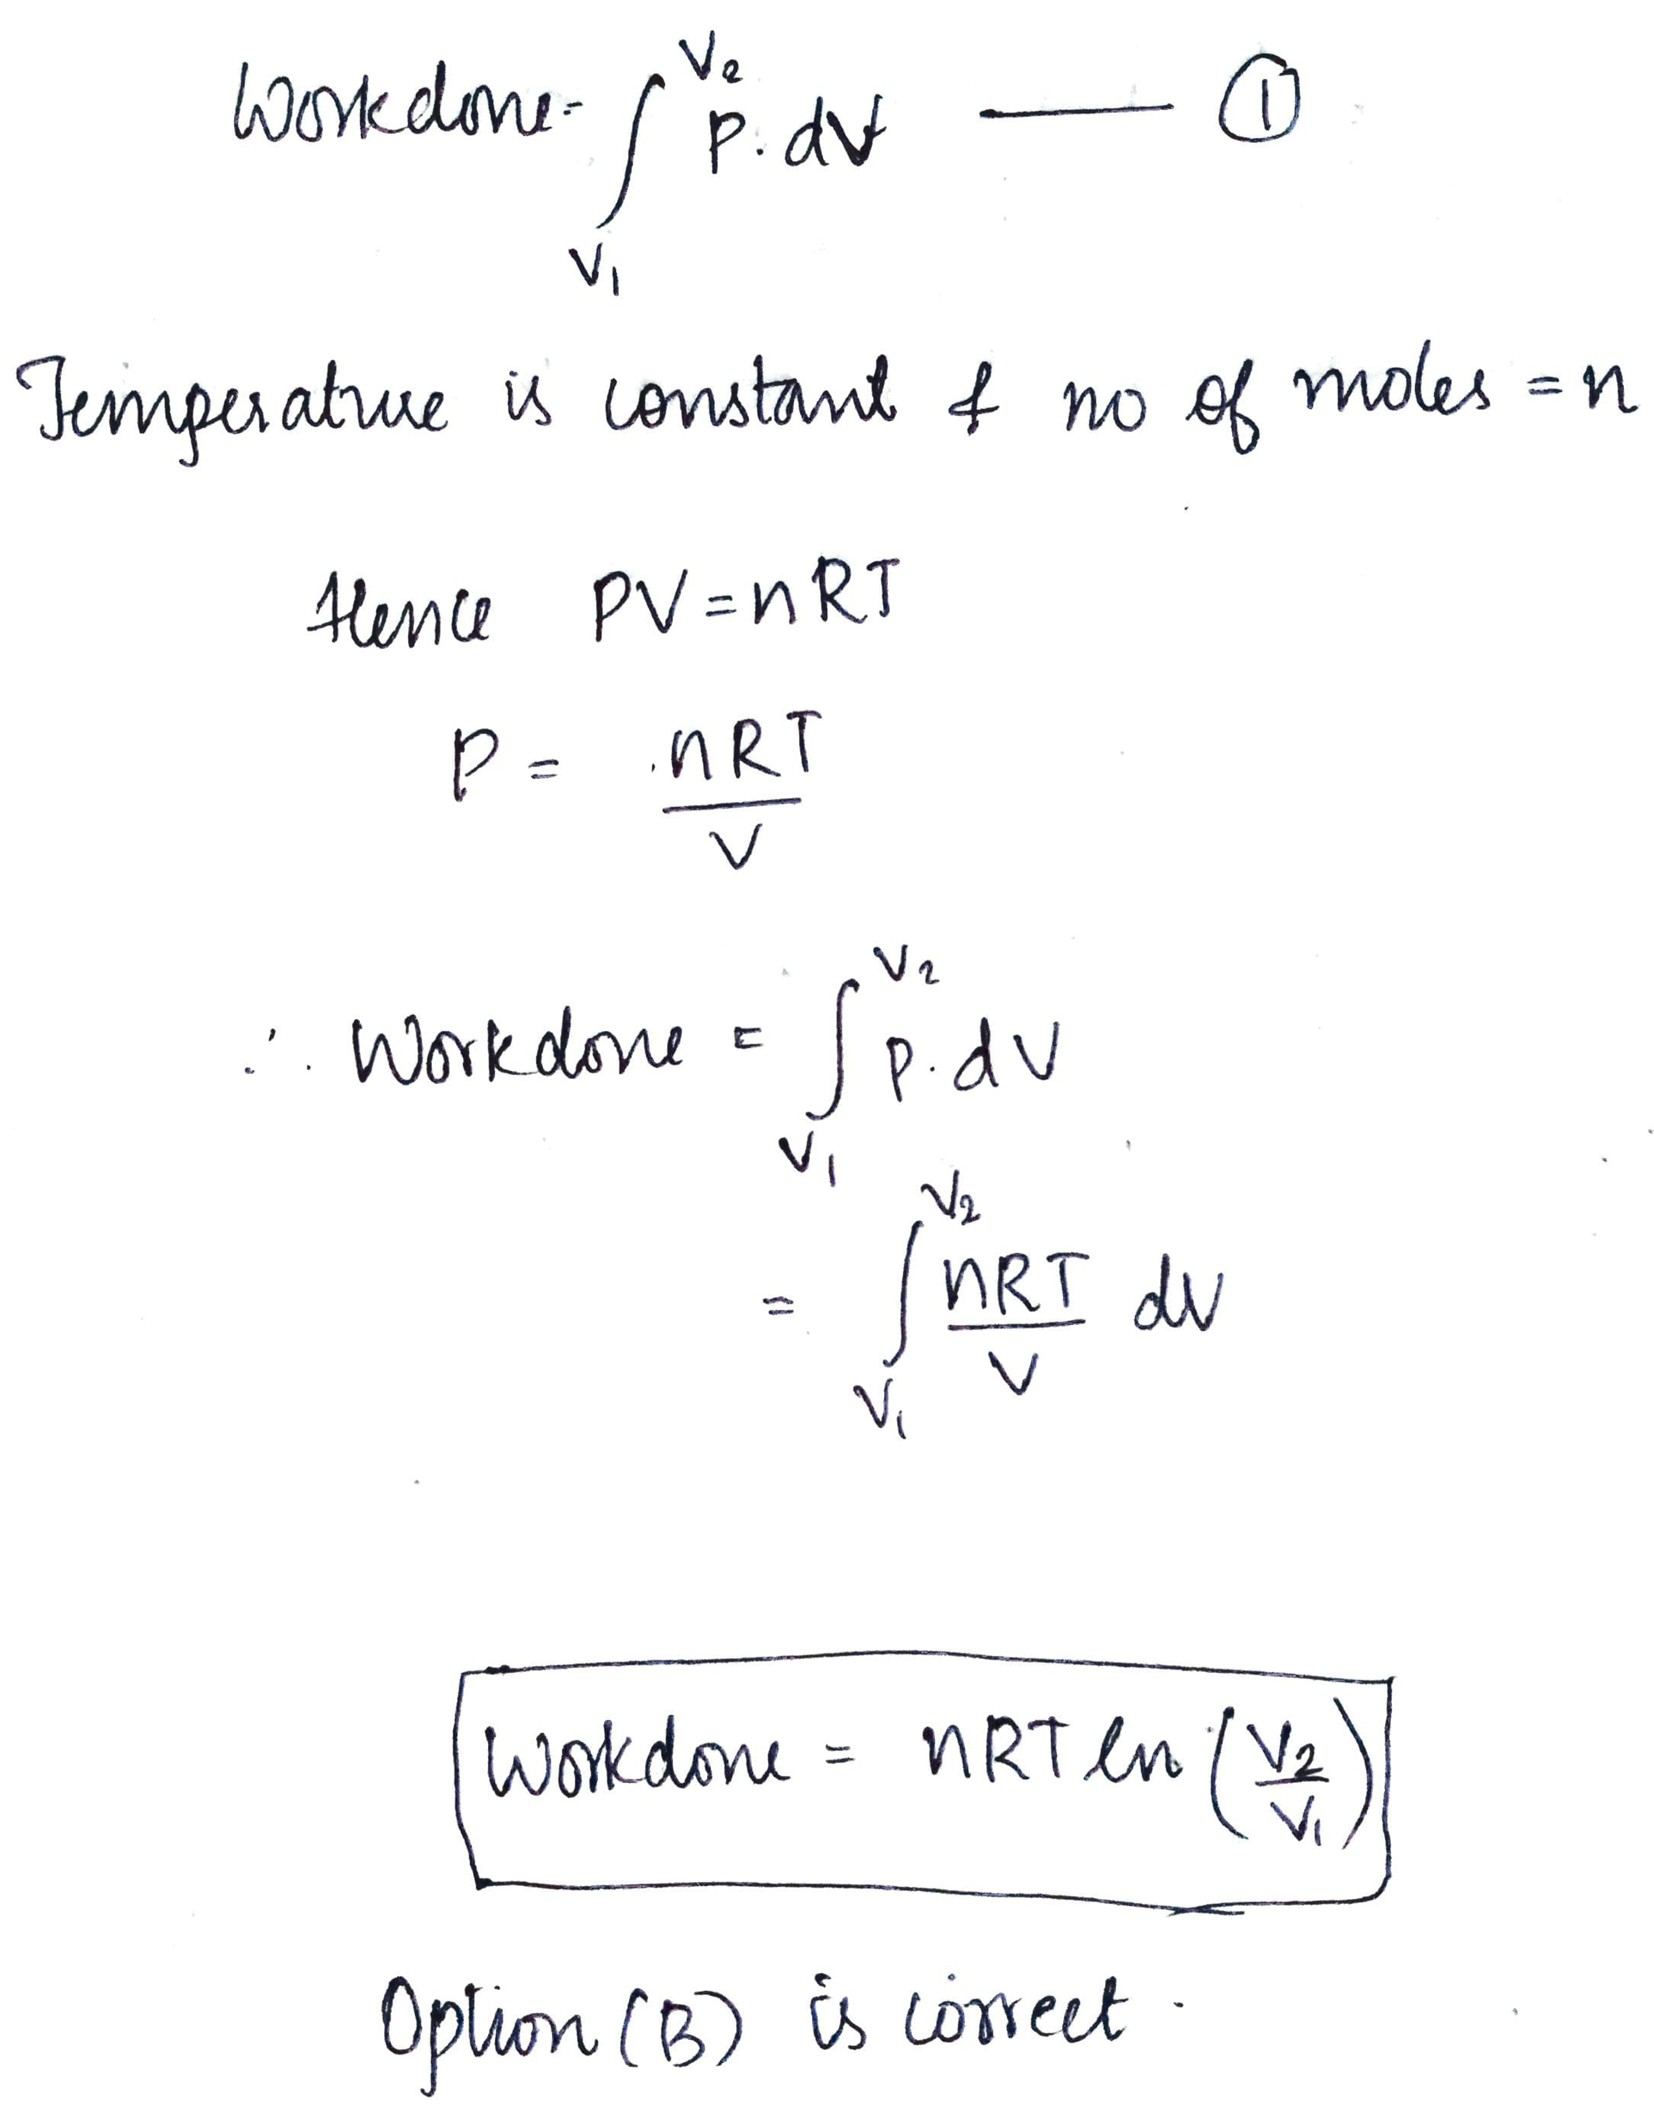 Workdone = ∫_{V₁}^{V₂} P. dV —— ①
Temperature is constant & no of moles = n
Hence PV = nRT
P = nRT/V
∴ Workdone = ∫_{V₁}^{V₂} P. dV
= ∫_{V₁}^{V₂} nRT/V dV
Workdone = nRT ln (V₂/V₁)
Option (B) is correct.